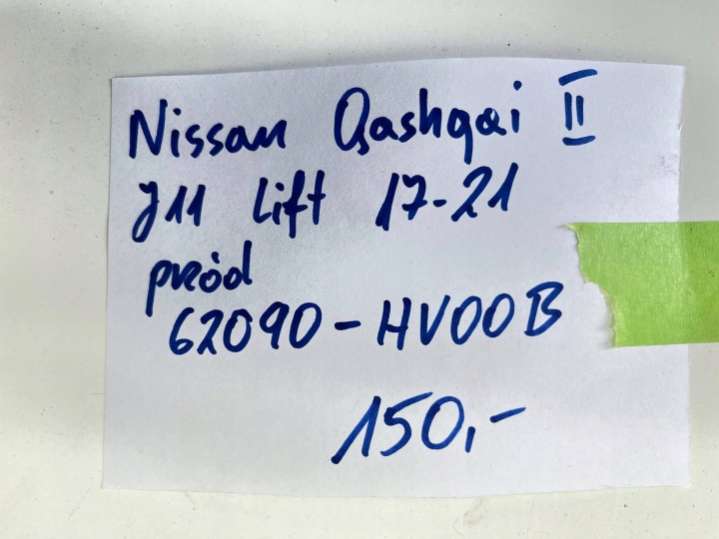 Nissan Qashqai II
J11 Lift 17-21
przód
62090-HV00B
150,-